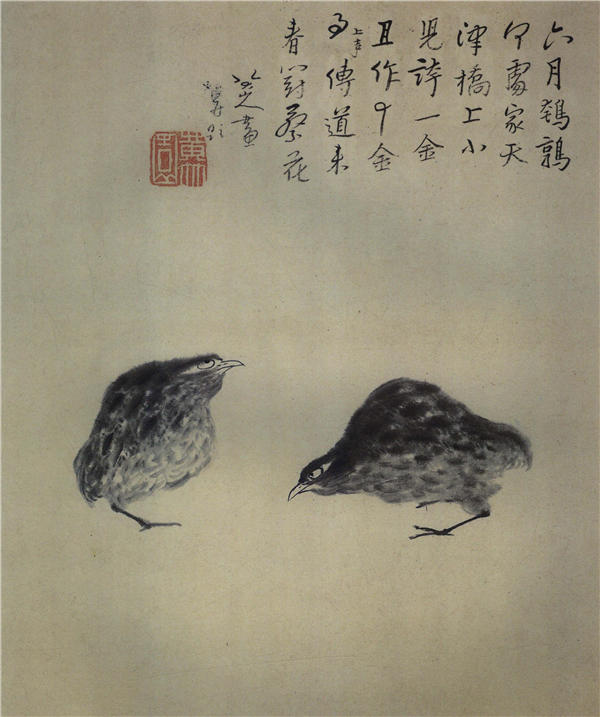 六月鵪鶉
何處家天
津橋上小
兒誇一金
且作十金
事傳道来
春對蔡花
八大山人畫